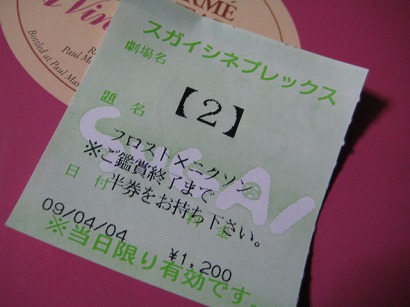 スガイシネプレックス
劇場名
題名
【2】
フロスト×ニクソン
※ご鑑賞終了まで
日付
半券をお持ち下さい。
09/04/04
¥1,200
※当日限り有効です
SUGAI
Bottled at Paul